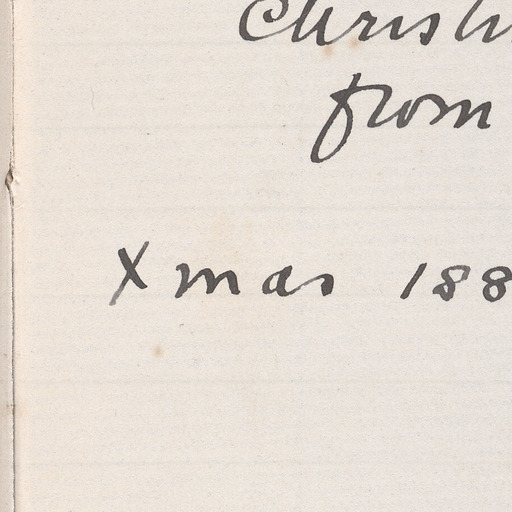 Christi
from
Xmas 188